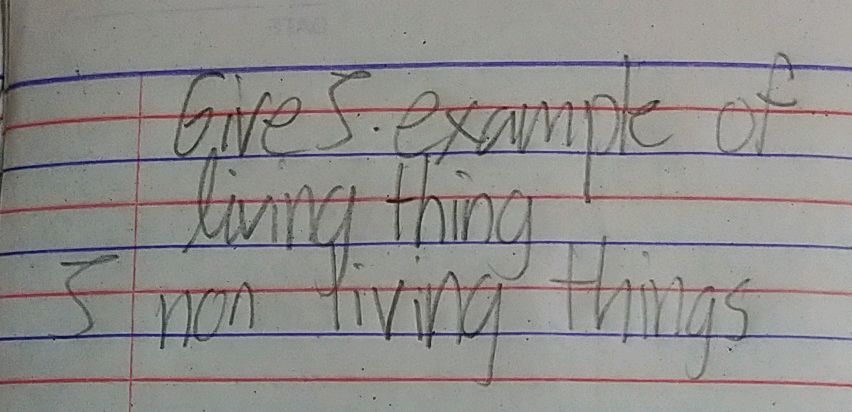 Give 5. example of
living thing
5 non living things